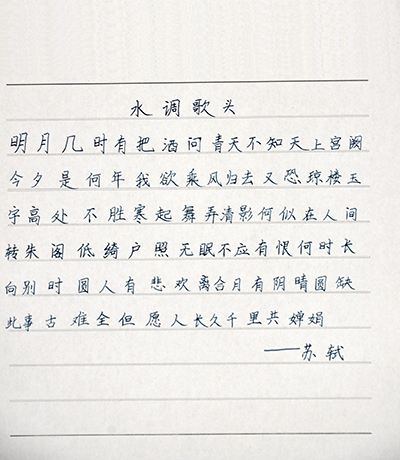 水调歌头
明月几时有把酒问青天不知天上宫阙
今夕是何年我欲乘风归去又恐琼楼玉
宇高处不胜寒起舞弄清影何似在人间
转朱阁低绮户照无眠不应有恨何时长
向别时圆人有悲欢离合月有阴晴圆缺
此事古难全但愿人长久千里共婵娟
——苏轼